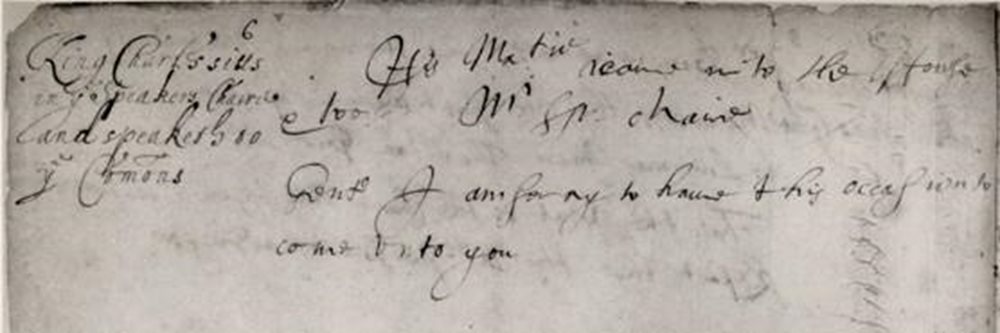 6
King Charles sitts
in ye Speakers Chaire
and speaketh to
ye Comons
His Matie came into the House
& too Mr Sp: chaire
Gentl I am sorry to haue this occasion to
come vnto you